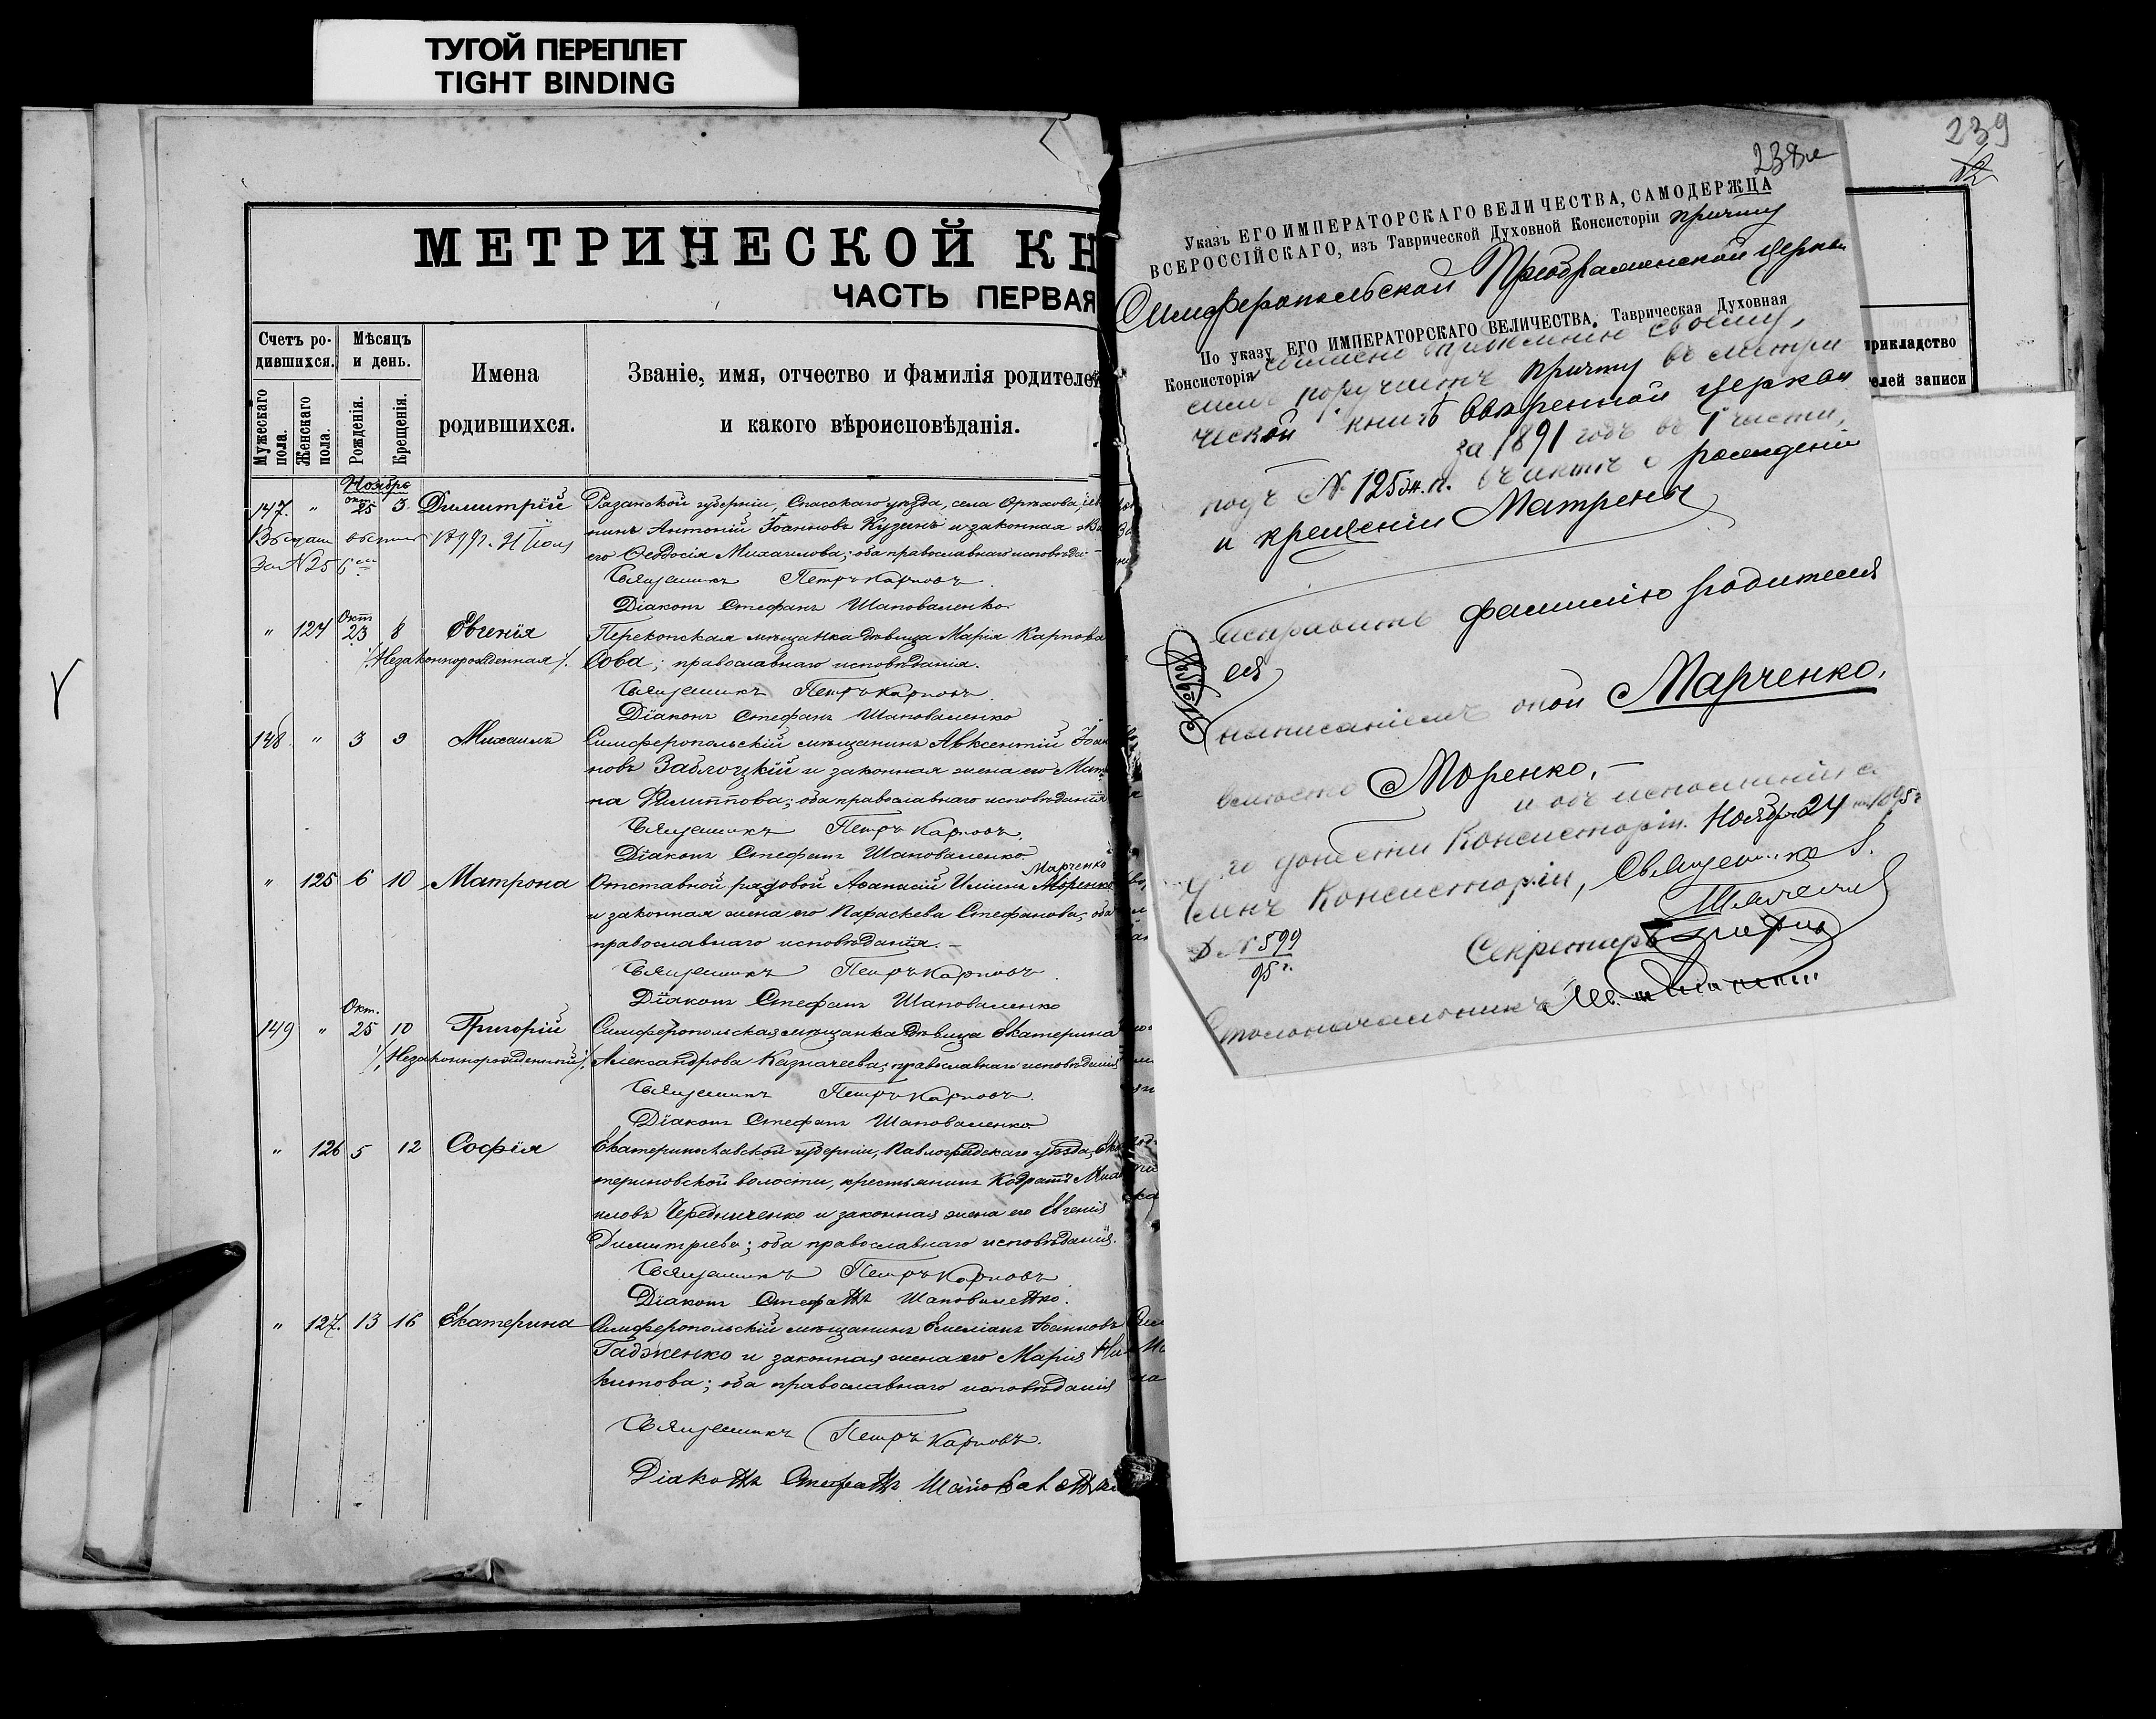 ТУГОЙ ПЕРЕПЛЕТ
TIGHT BINDING
МЕТРИЧЕСКОЙ КН
ЧАСТЬ ПЕРВАЯ
Счетъ ро-
дившихся.
Мѣсяцъ
и день.
Мужескаго пола.
Женскаго пола.
Рожденія.
Крещенія.
Имена
родившихся.
Званіе, имя, отчество и фамилія родителей
и какого вѣроисповѣданія.
Ноябрь
147. " окт. 25 3. Димитрій Рязанской губерніи, Спасскаго уѣзда, села Орѣхова,
1899. 31 Іюля нинъ Антоній Іоанновъ Кузинъ и законная
За № 25 его Ѳеодосія Михаилова; оба православнаго исповѣда-
Священникъ Петръ Карповъ.
Діаконъ Стефанъ Шаповаленко.
" 124 Окт 23 8 Евгенія Перекопская мѣщанка дѣвица Марія Карпова
/Незаконнорожденная/. сова; православнаго исповѣданія.
Священникъ Петръ Карповъ.
Діаконъ Стефанъ Шаповаленко
148 " 3 9 Михаилъ Симферопольскій мѣщанинъ Авксентій Іоан
новъ Заблоцкій и законная жена его Мат
на Филиппова; оба православнаго исповѣданія
Священникъ Петръ Карповъ.
Діаконъ Стефанъ Шаповаленко.
Марченко
" 125 6 10 Матрона Отставной рядовой Аѳанасій Ильинъ Моренко
и законная жена его Параскева Стефанова, оба
православнаго исповѣданія. –
Священникъ Петръ Карповъ.
Діаконъ Стефанъ Шаповаленко
149 " Окт. 25 10 Григорій Симферопольская мѣщанка дѣвица Екатерина
/Незаконнорожденный/. Александрова Казначеева; православнаго исповѣданія
Священникъ Петръ Карповъ.
Діаконъ Стефанъ Шаповаленко
" 126 5 12 Софія Екатеринославской губерніи, Павлоградскаго уѣзда, Ека
териновской волости, крестьянинъ Кодратъ Миха
иловъ Чередниченко и законная жена его Евгенія
Димитріева; оба православнаго исповѣданія.
Священникъ Петръ Карповъ
Діаконъ Стефанъ Шаповаленко.
" 127. 13 16 Екатерина Симферопольскій мѣщанинъ Емеліанъ Іоанновъ
Гадженко и законная жена его Марія Ни
китова; оба православнаго исповѣданія
Священникъ Петръ Карповъ.
Діаконъ Стефанъ Шаповаленко
239
12
238
Указъ ЕГО ИМПЕРАТОРСКАГО ВЕЛИЧЕСТВА, САМОДЕРЖЦА
ВСЕРОССІЙСКАГО, изъ Таврической Духовной Консисторіи причту
Симферопольской Преображенской церкви
По указу ЕГО ИМПЕРАТОРСКАГО ВЕЛИЧЕСТВА, Таврическая Духовная
Консисторія, согласно опредѣленію своему,
симъ поручаетъ причту въ метри
ческой книгѣ ввѣренной церкви
за 1891 годъ въ I части,
подъ № 125 ж. п. въ актѣ о рожденіи
и крещеніи Матроны
исправить фамилію родителя
ея
написаніемъ оной Марченко,
вмѣсто Моренко, –
и объ исполненіи се
го донести Консисторіи. Ноября 24 дня 1895 г.
Членъ Консисторіи, Священникъ
Секретарь
Д. № 599
95 г.
Столоначальникъ
прикладство
телей записи